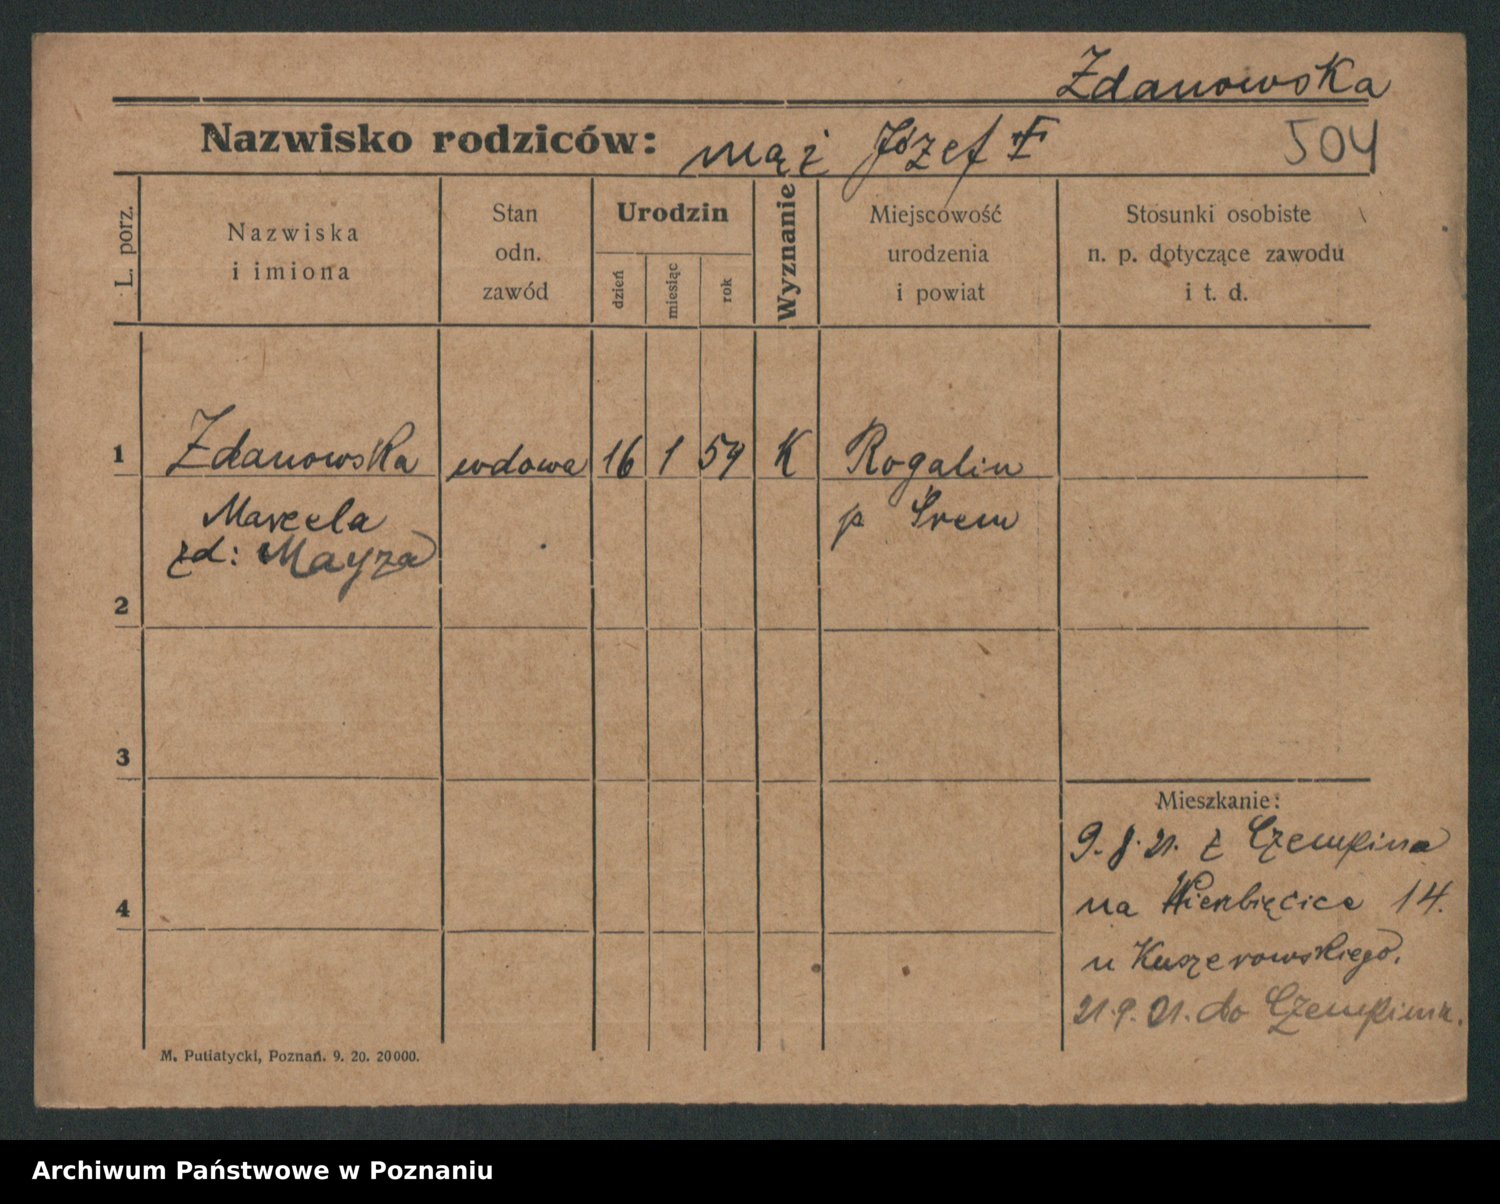 Zdanowska
Nazwisko rodziców: mąż Józef ‡
504
L. porz.
Nazwiska
i imiona
Stan
odn.
zawód
Urodzin
dzień
miesiąc
rok
Wyznanie
Miejscowość
urodzenia
i powiat
Stosunki osobiste
n. p. dotyczące zawodu
i t. d.
1 Zdanowska wdowa 16 1 54 K Rogalin
Marcela p Śrem
zd: Mayza
2
3
4
Mieszkanie:
9. 8. 21. z Czempina
na Wierbięcice 14.
u Kuszerowskiego.
21. 9. 21. do Czempinia.
M. Putiatycki, Poznań. 9. 20. 20000.
Archiwum Państwowe w Poznaniu